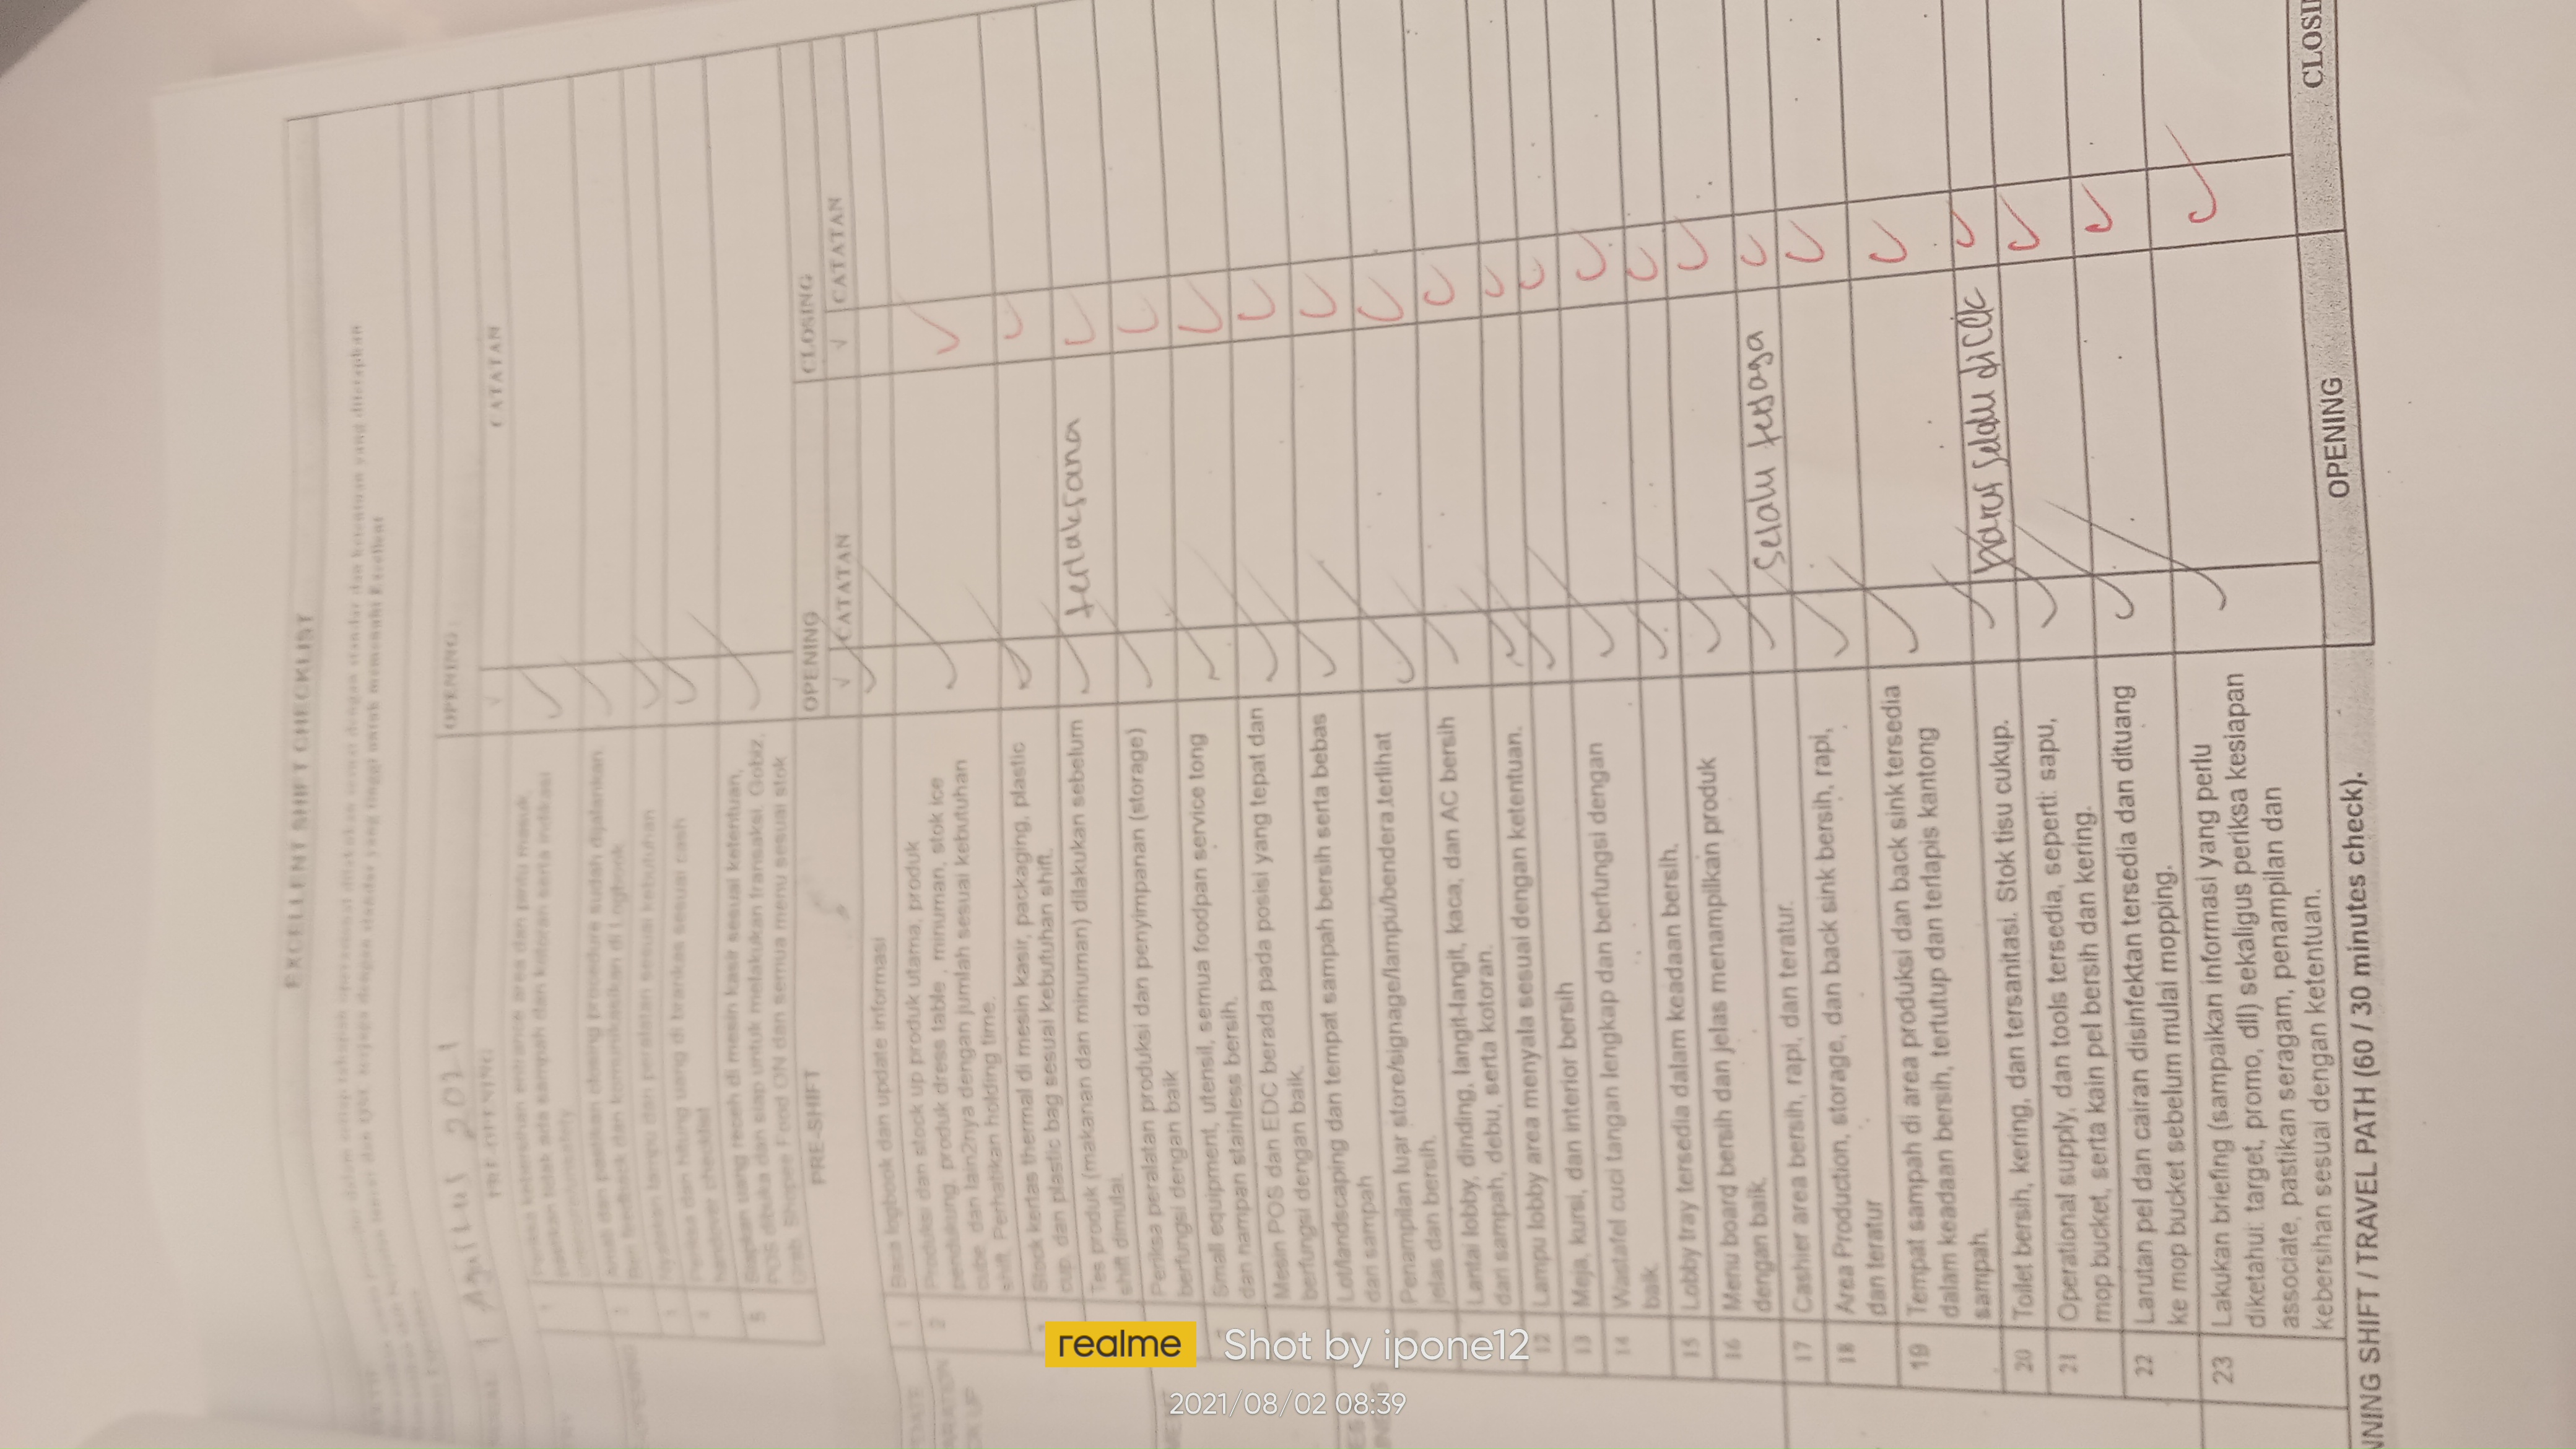 EXCELLENT SHIFT CHECKLIST
1 Agustus 2021
PRE-OPENING
OPENING
√ CATATAN
1 Periksa kebersihan entrance area dan pintu masuk,
pastikan tidak ada sampah dan kotoran serta indikasi
2 Amati dan pastikan closing procedure sudah dijalankan.
Beri feedback dan komunikasikan di Logbook
3 Nyalakan lampu dan peralatan sesuai kebutuhan
4 Periksa dan hitung uang di brankas sesuai cash
handover checklist
5 Siapkan uang receh di mesin kasir sesuai ketentuan,
POS dibuka dan siap untuk melakukan transaksi. Gobiz,
Grab, Shopee Food ON dan semua menu sesuai stok
PRE-SHIFT
OPENING CLOSING
√ CATATAN √ CATATAN
1 Baca logbook dan update informasi
2 Produksi dan stock up produk utama, produk
pendukung, produk dress table, minuman, stok ice
cube, dan lain2nya dengan jumlah sesuai kebutuhan
shift. Perhatikan holding time.
Stock kertas thermal di mesin kasir, packaging, plastic
cup, dan plastic bag sesuai kebutuhan shift.
Tes produk (makanan dan minuman) dilakukan sebelum
shift dimulai.
terlaksana
Periksa peralatan produksi dan penyimpanan (storage)
berfungsi dengan baik
Small equipment, utensil, semua foodpan service tong
dan nampan stainless bersih.
Mesin POS dan EDC berada pada posisi yang tepat dan
berfungsi dengan baik.
Lot/landscaping dan tempat sampah bersih serta bebas
dari sampah
Penampilan luar store/signage/lampu/bendera terlihat
jelas dan bersih.
Lantai lobby, dinding, langit-langit, kaca, dan AC bersih
dari sampah, debu, serta kotoran.
12 Lampu lobby area menyala sesuai dengan ketentuan.
13 Meja, kursi, dan interior bersih
14 Wastafel cuci tangan lengkap dan berfungsi dengan
baik.
15 Lobby tray tersedia dalam keadaan bersih.
16 Menu board bersih dan jelas menampilkan produk
dengan baik.
selalu terjaga
17 Cashier area bersih, rapi, dan teratur.
18 Area Production, storage, dan back sink bersih, rapi,
dan teratur
19 Tempat sampah di area produksi dan back sink tersedia
dalam keadaan bersih, tertutup dan terlapis kantong
sampah.
20 Toilet bersih, kering, dan tersanitasi. Stok tisu cukup.
harus selalu di cek
21 Operational supply, dan tools tersedia, seperti: sapu,
mop bucket, serta kain pel bersih dan kering.
22 Larutan pel dan cairan disinfektan tersedia dan dituang
ke mop bucket sebelum mulai mopping.
23 Lakukan briefing (sampaikan informasi yang perlu
diketahui: target, promo, dll) sekaligus periksa kesiapan
associate, pastikan seragam, penampilan dan
kebersihan sesuai dengan ketentuan.
NNING SHIFT / TRAVEL PATH (60 / 30 minutes check).
OPENING
CLOSI
realme Shot by ipone12
2021/08/02 08:39